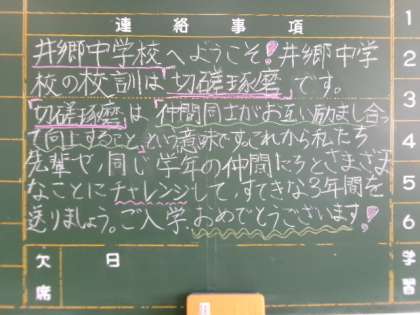 連絡事項
井郷中学校へようこそ!井郷中学
校の校訓は「切磋琢磨」です。
「切磋琢磨」は「仲間同士がお互い励まし合っ
て向上すること」という意味です。これから私たち
先輩や、同じ学年の仲間たちとさまざま
なことにチャレンジして、すてきな3年間を
送りましょう。ご入学おめでとうございます!
欠席
日
1
2
3
4
5
6
学習